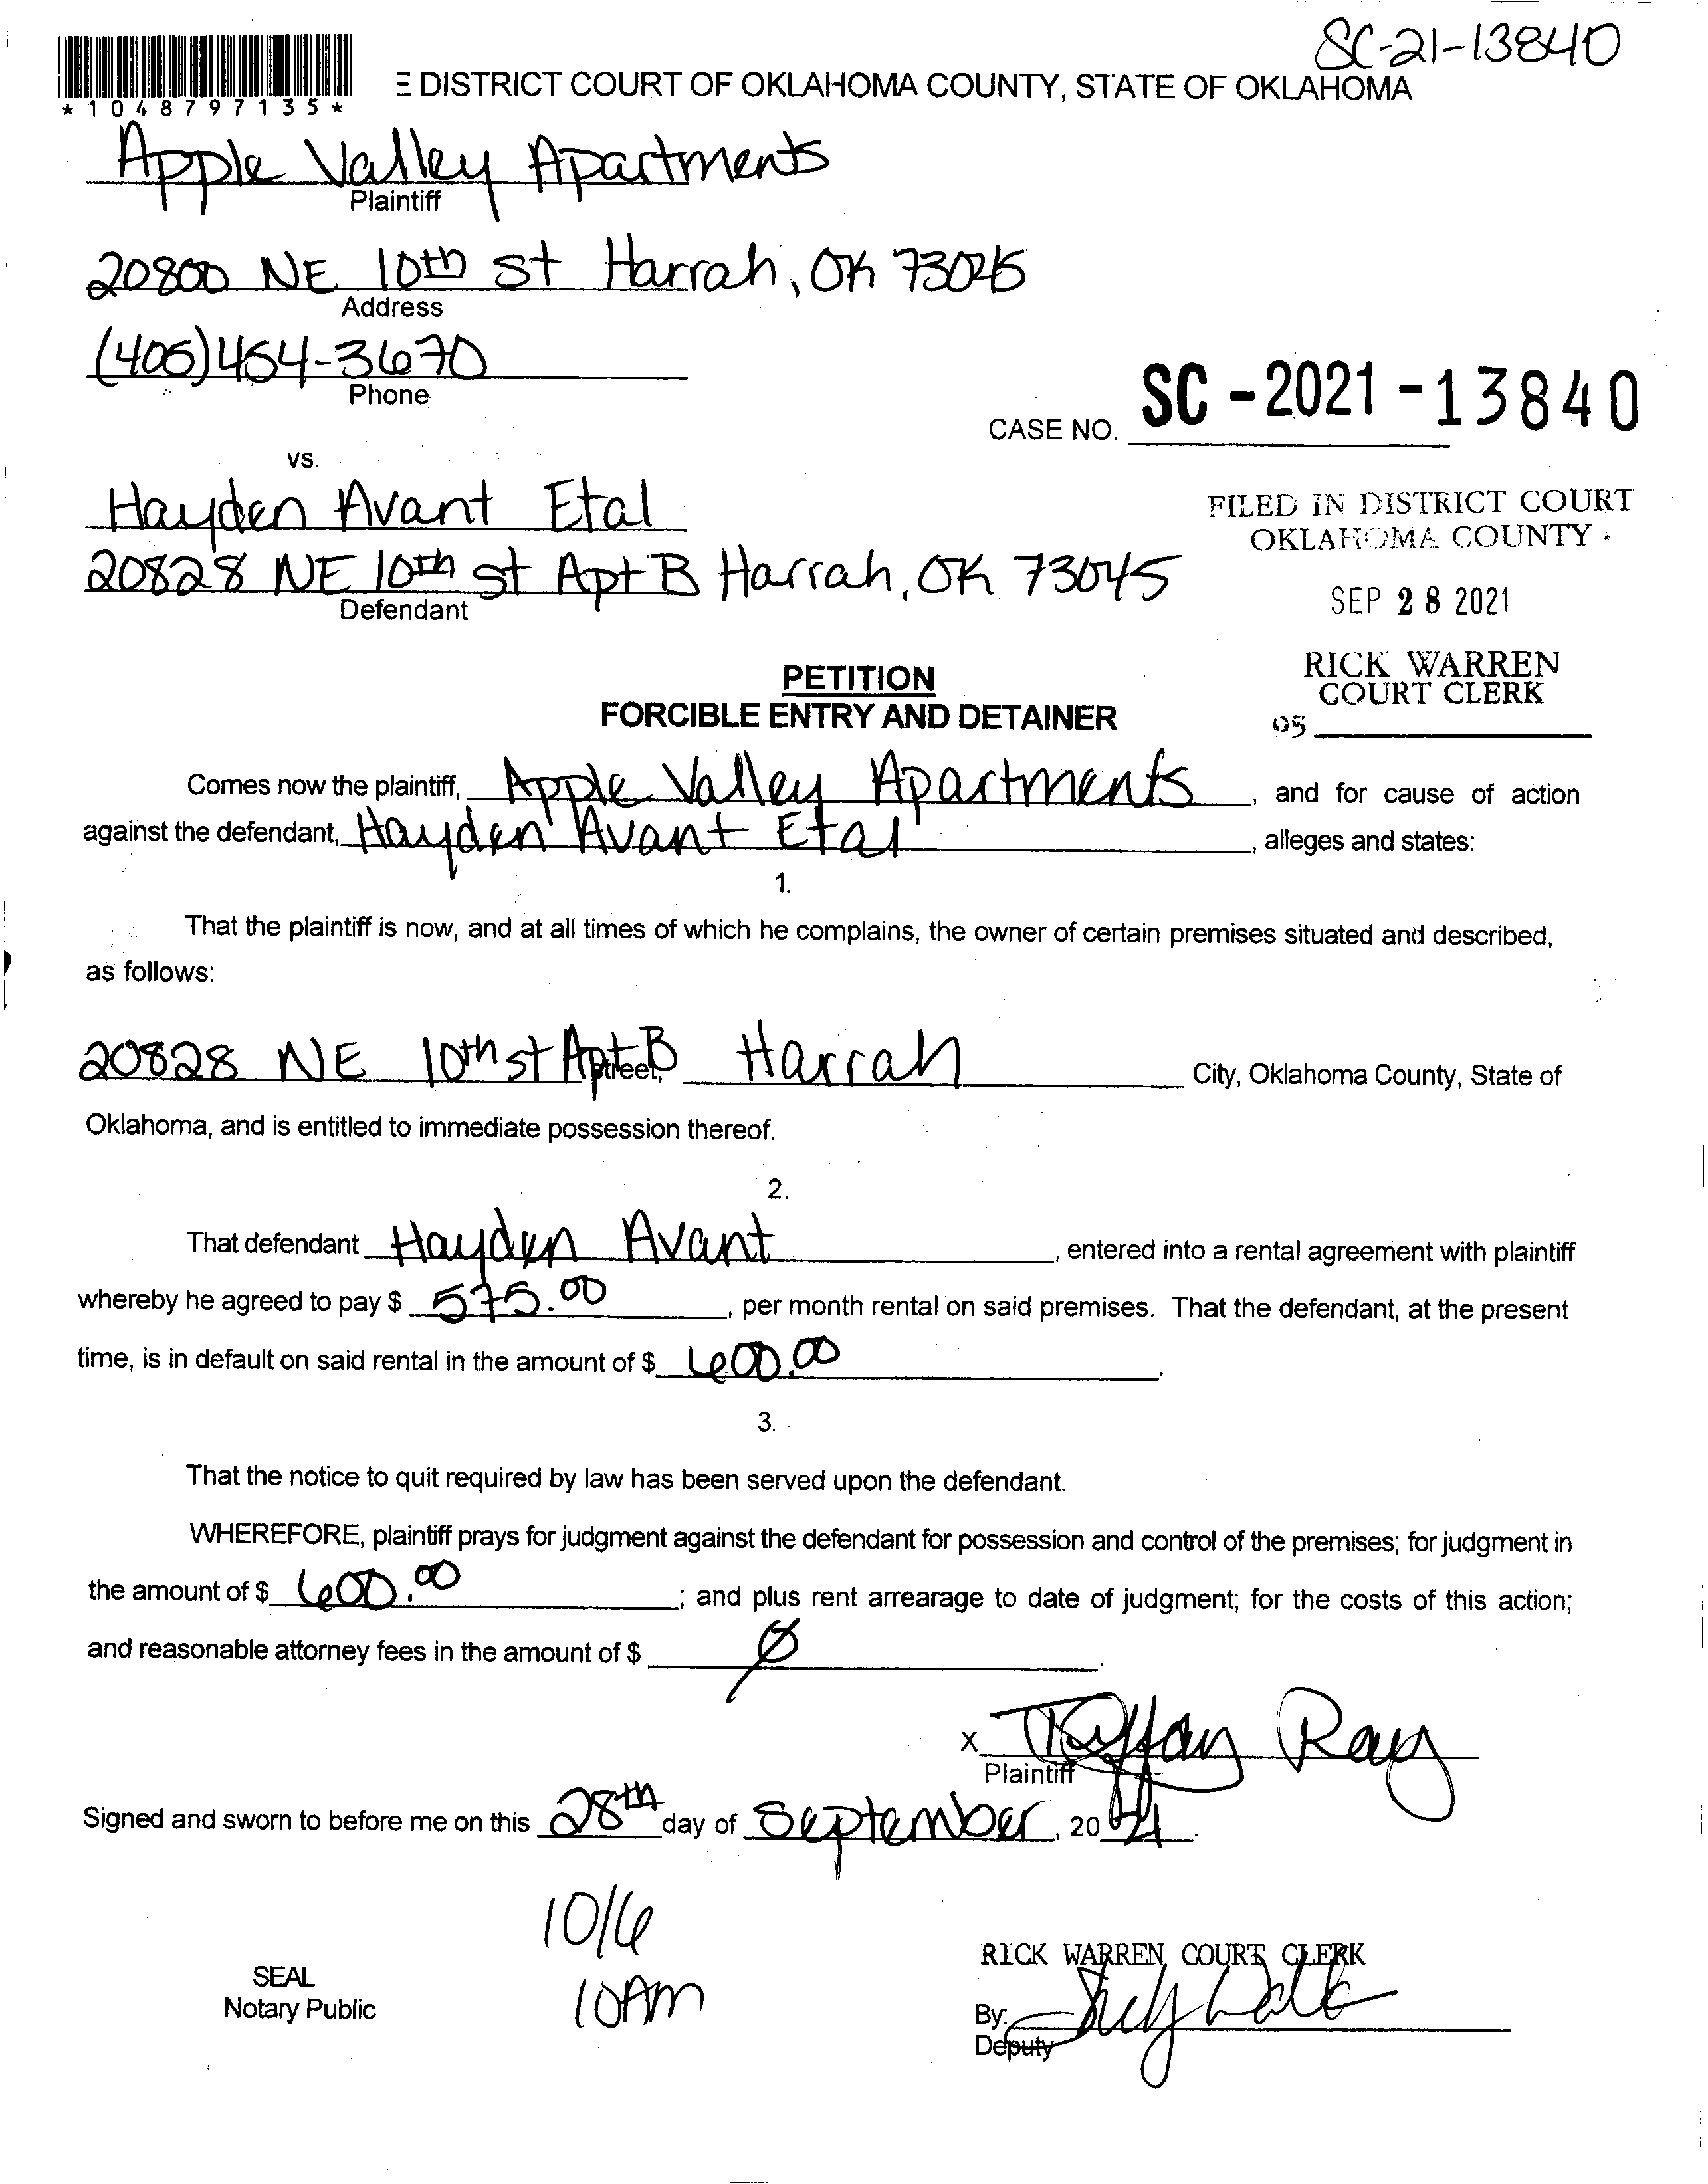 SC-21-13840
*1048797135*
E DISTRICT COURT OF OKLAHOMA COUNTY, STATE OF OKLAHOMA
Apple Valley Apartments
Plaintiff
20800 NE 10th st Harrah, OK 73045
Address
(405)454-3670
Phone
CASE NO. SC-2021-13840
vs.
Hayden Avant Etal
20828 NE 10th st Apt B Harrah, OK 73045
Defendant
FILED IN DISTRICT COURT
OKLAHOMA COUNTY
SEP 28 2021
RICK WARREN
COURT CLERK
05
PETITION
FORCIBLE ENTRY AND DETAINER
Comes now the plaintiff, Apple Valley Apartments, and for cause of action
against the defendant, Hayden Avant Etal, alleges and states:
1.
That the plaintiff is now, and at all times of which he complains, the owner of certain premises situated and described,
as follows:
20828 NE 10th st Apt B Street, Harrah City, Oklahoma County, State of
Oklahoma, and is entitled to immediate possession thereof.
2.
That defendant Hayden Avant, entered into a rental agreement with plaintiff
whereby he agreed to pay $ 575.00, per month rental on said premises. That the defendant, at the present
time, is in default on said rental in the amount of $ 600.00.
3.
That the notice to quit required by law has been served upon the defendant.
WHEREFORE, plaintiff prays for judgment against the defendant for possession and control of the premises; for judgment in
the amount of $ 600.00; and plus rent arrearage to date of judgment; for the costs of this action;
and reasonable attorney fees in the amount of $ Ø.
X Tiffany Ray
Plaintiff
Signed and sworn to before me on this 28th day of September, 2021.
10/6
10AM
SEAL
Notary Public
RICK WARREN COURT CLERK
By:
Deputy